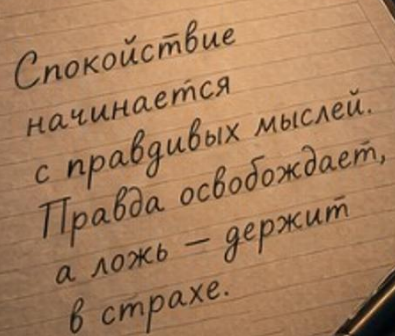 Спокойствие
начинается
с правдивых мыслей.
Правда освобождает,
а ложь – держит
в страхе.